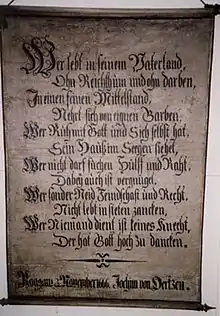 Wer lebt in seinem Vaterland,
Ohn Reichthum und ohn darben,
In einen feinen Mittelstand,
Nehrt sich von eignen Garben,
Wer Ruh mit Gott und Sich selbst hat,
Sein Hauß im Seegen siehet,
Wer nicht darf suchen Hülff und Raht,
Dabey auch ist vergnügt,
Wer sonder Neid Feindschaft und Recht,
Nicht lebt in steten zancken,
Wer Niemand dient ist keines Knecht,
Der hat Gott hoch zu dancken.
November 1666. Jochim von Oertzen.